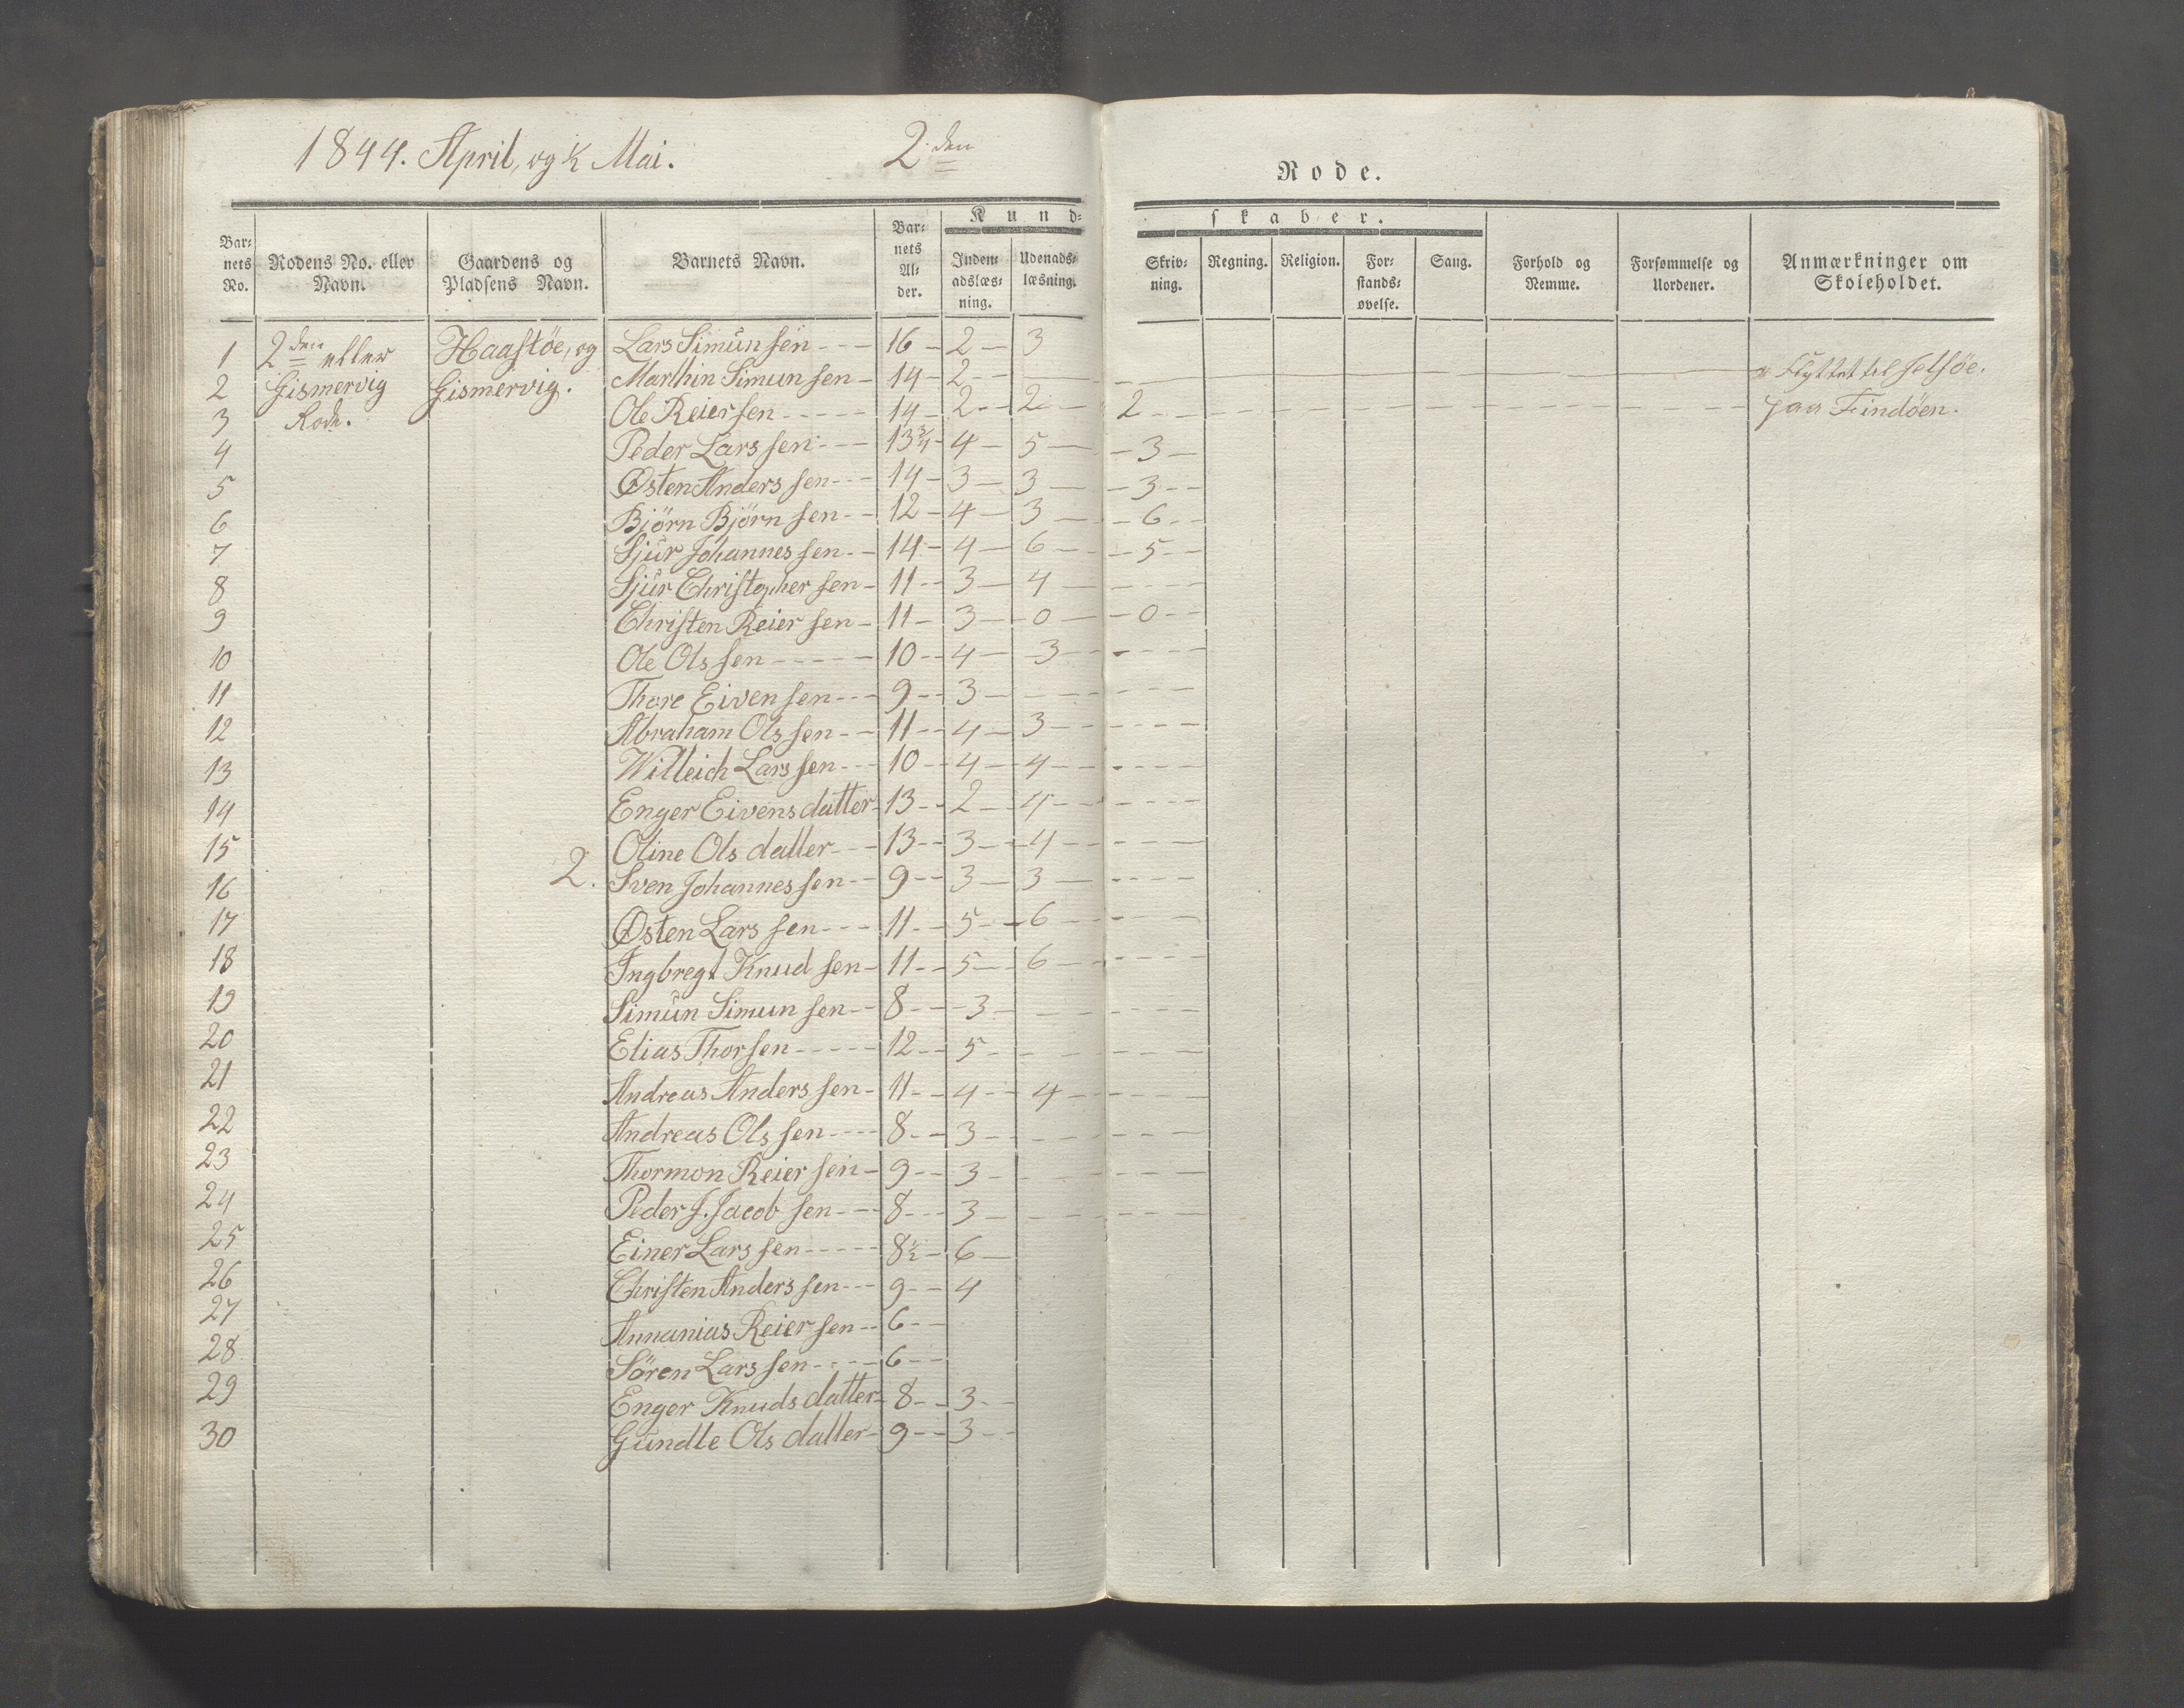 1844. April, og ½ Mai. 2den Rode.
Kundskaber.
Barnets No. | Rodens No. eller Navn. | Gaardens og Pladsens Navn. | Barnets Navn. | Barnets Alder. | Indenadslæsning. | Udenadslæsning. | Skrivning. | Regning. | Religion. | Forstandsøvelse. | Sang. | Forhold og Nemme. | Forsømmelse og Uordener. | Anmærkninger om Skoleholdet.
1 2den eller Haastöe, og Lars Simünsen --- 16 - 2 - 3
2 Gismervig Gismervig. Marthin Simunsen - 14 - 2 - - Flyttet til Jelsöe.
3 Rode. Ole Reiersen ----- 14 - 2 -- 2 - 2 -- paa Findöen.
4 Peder Larssen --- 13 3/4 - 4 - 5 - - 3 -
5 Østen Anderssen --- 14 - 3 - 3 - - 3 --
6 Björn Björnsen -- 12 - 4 - 3 - - 6 --
7 Sjür Johannessen -- 14 - 4 - 6 - - 5 --
8 Sjür Christophersen - 11 -- 3 - 4 - ----
9 Christen Reiersen - 11 - 3 - 0 - - 0 --
10 Ole Olssen ----- 10 -- 4 - 3 -- ----
11 Thore Eivensen --- 9 -- 3 - ----
12 Abraham Olssen -- 11 -- 4 - 3 - ----
13 Willeich Larssen --- 10 -- 4 - 4 - ----
14 Enger Eivensdatter - 13 -- 2 - 4 - ----
15 Oline Olsdatter --- 13 -- 3 - 4 - ----
16 2. Sven Johannessen -- 9 -- 3 - 3 - ----
17 Østen Larssen --- 11 -- 5 -- 6 - ----
18 Ingbregt Knudsen - 11 -- 5 - 6 - ----
19 Simün Simunsen -- 8 -- 3 - ----
20 Elias Thorsen ----- 12 -- 5 - ----
21 Andreas Anderssen - 11 -- 4 -- 4 - ----
22 Andreas Olssen ---- 8 -- 3 - ----
23 Thormon Reiersen - 9 -- 3 - ----
24 Peder J. Jacobsen --- 8 --- 3 - ----
25 Einer Larssen ----- 8½ - 6 -
26 Christen Anderssen --- 9 -- 4
27 Annanias Reiersen -- 6 --
28 Sören Larssen ---- 6 --
29 Enger Knudsdatter - 8 -- 3 --
30 Gündle Olsdatter - 9 -- 3 --